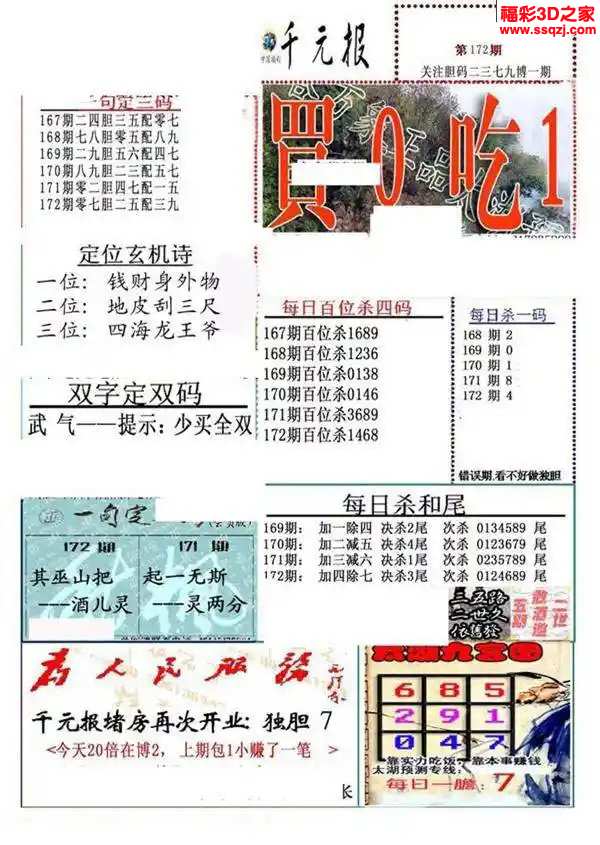 福彩3D之家
www.ssqzj.com
千元报
第172期
关注胆码二三七九博一期
一句定三码
167期二四胆三五配零七
168期七八胆零五配八九
169期二九胆五六配四七
170期八九胆二三配五七
171期零二胆四七配一五
172期零七胆二五配三九
買0吃1
定位玄机诗
一位: 钱财身外物
二位: 地皮刮三尺
三位: 四海龙王爷
每日百位杀四码
167期百位杀1689
168期百位杀1236
169期百位杀0138
170期百位杀0146
171期百位杀3689
172期百位杀1468
每日杀一码
168 期 2
169 期 0
170 期 1
171 期 8
172 期 4
错误期,看不好做独胆
双字定双码
武 气——提示: 少买全双
一句定
172 期
其巫山把
---酒儿灵
171 期
起一无斯
---灵两分
每日杀和尾
169期: 加一除四 决杀2尾 次杀 0134589 尾
170期: 加二减五 决杀4尾 次杀 0123679 尾
171期: 加三减六 决杀1尾 次杀 0235789 尾
172期: 加四除七 决杀3尾 次杀 0124689 尾
三五路
二世久
二世
五期
为人民服务
千元报堵房再次开业: 独胆 7
<今天20倍在博2, 上期包1小赚了一笔 >
长
太湖九宫图
6 8 5
2 9 1
0 4 7
靠实力吃饭, 靠本事赚钱
太湖预测专线:
每日一胆: 7